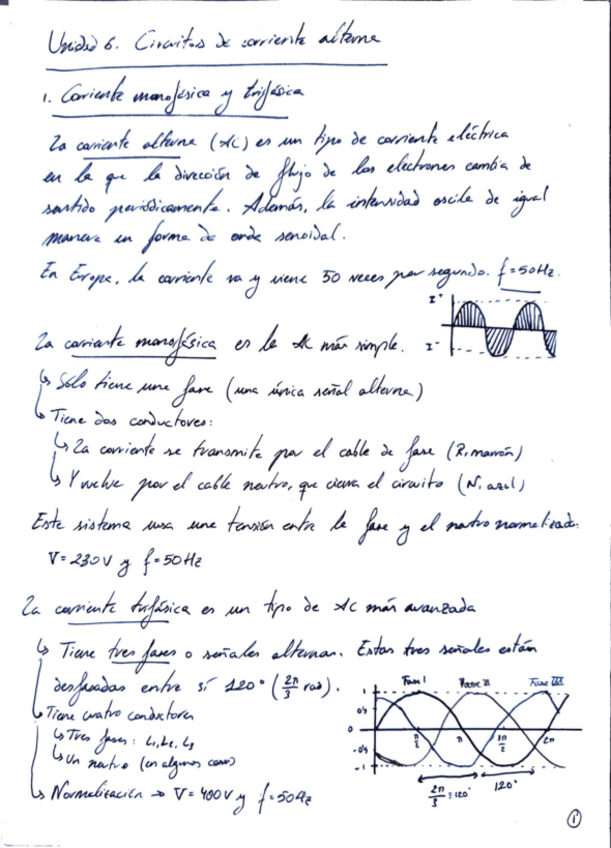 Unidad 6. Circuitos de corriente alterna
1. Corriente monofásica y trifásica
La corriente alterna (AC) es un tipo de corriente eléctrica
en la que la dirección de flujo de los electrones cambia de
sentido periódicamente. Además, la intensidad oscila de igual
manera en forma de onda senoidal.
En Europa, la corriente va y viene 50 veces por segundo. f=50Hz.
I+
I-
La corriente monofásica es la AC más simple.
↳ Sólo tiene una fase (una única señal alterna)
↳ Tiene dos conductores:
↳ La corriente se transmite por el cable de fase (R, marrón)
↳ Y vuelve por el cable neutro, que cierra el circuito (N, azul)
Este sistema usa una tensión entre la fase y el neutro normalizada:
V=230V y f=50Hz
La corriente trifásica es un tipo de AC más avanzada
↳ Tiene tres fases o señales alternas. Estas tres señales están
desfasadas entre sí 120° (2π/3 rad).
↳ Tiene cuatro conductores
↳ Tres fases: L1, L2, L3
↳ Un neutro (en algunos casos)
↳ Normalización → V=400V y f=50Hz
Fase I Fase II Fase III
1
0'5
0
-0'5
-1
π/2 π 3π/2 2π
2π/3 = 120° 120°
1